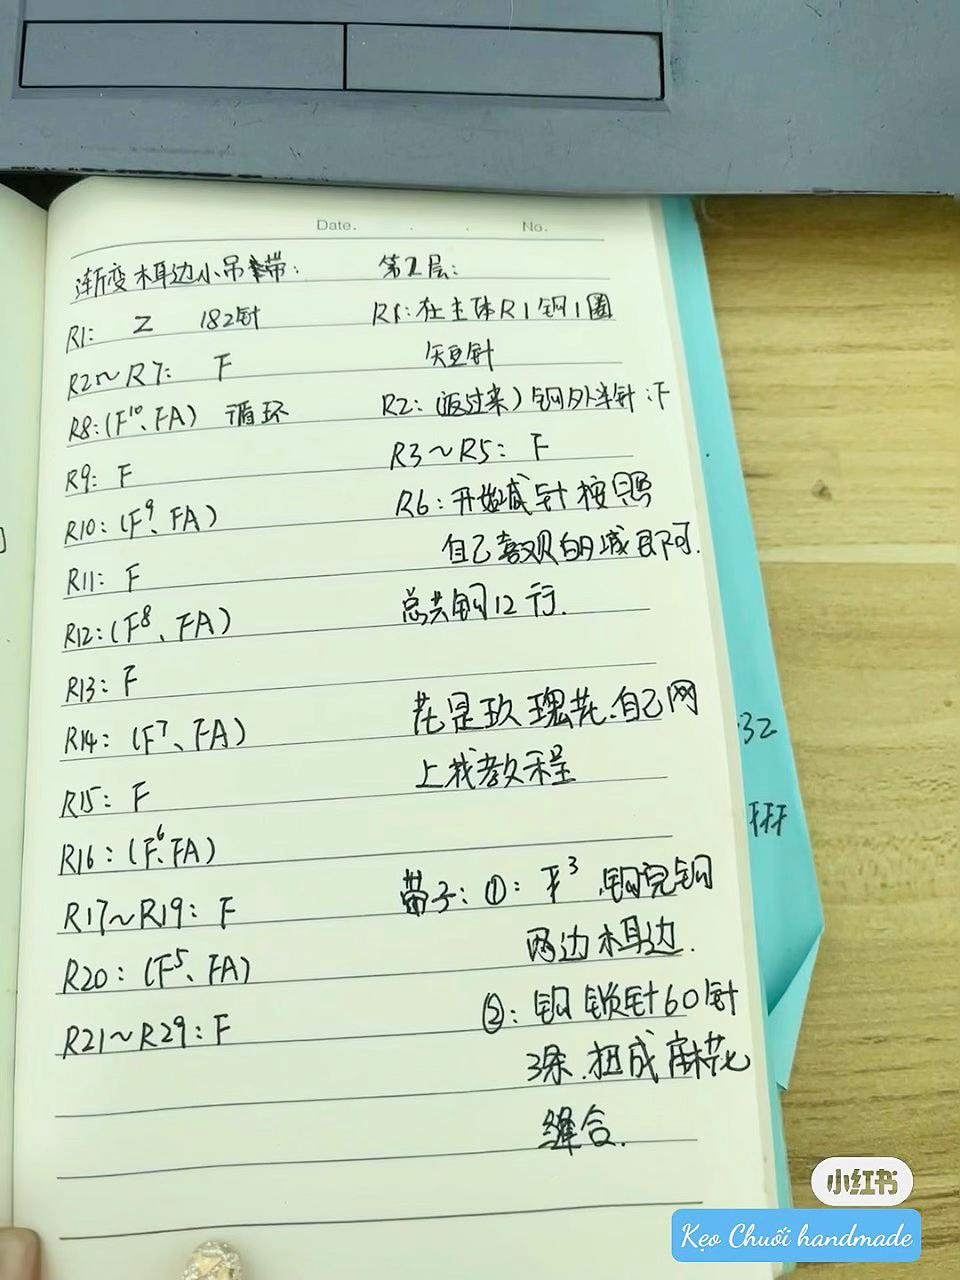 Date.
No.
渐变木耳边小吊带:
R1: Z 182针
R2~R7: F
R8:(F¹⁰、FA) 循环
R9: F
R10:(F⁹、FA)
R11: F
R12:(F⁸、FA)
R13: F
R14: (F⁷、FA)
R15: F
R16:(F⁶、FA)
R17~R19: F
R20: (F⁵、FA)
R21~R29: F
第2层:
R1:在主体R1钩1圈
短针
R2:(返过来)钩外半针:F
R3~R5: F
R6:开始减针按照
自己喜欢的减即可.
总共钩12行.
花是玫瑰花.自己网
上找教程
带子:①: F³ 钩完钩
两边木耳边.
②: 钩锁针60针
3条.扭成麻花
缝合.
32
FFF
小红书
Kẹo Chuối handmade